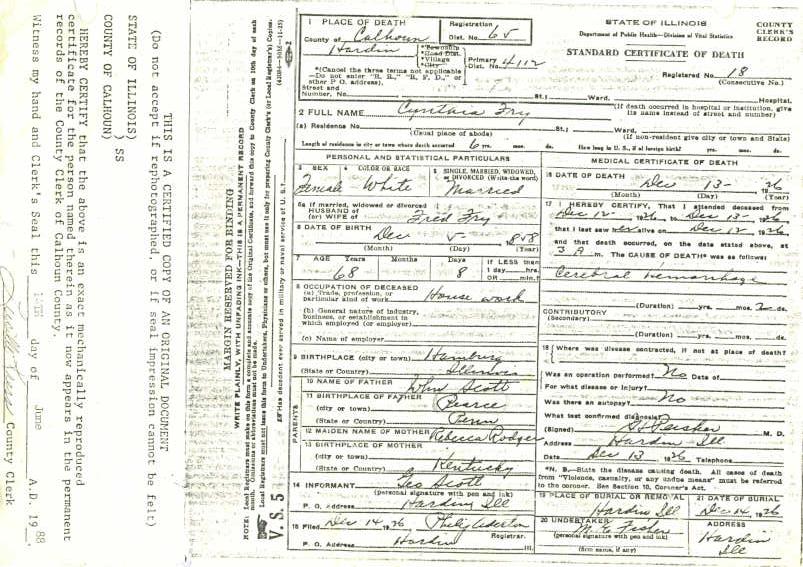 THIS IS A CERTIFIED COPY OF AN ORIGINAL DOCUMENT
(Do not accept if rephotographed, or if seal impression cannot be felt)
STATE OF ILLINOIS)
) SS
COUNTY OF CALHOUN)
I HEREBY CERTIFY that the above is an exact mechanically reproduced
certificate for the person named therein as it now appears in the permanent
records of the County Clerk of Calhoun County.
Witness my hand and Clerk's Seal this day of June A.D. 1988
County Clerk
MARGIN RESERVED FOR BINDING
WRITE PLAINLY, WITH UNFADING INK—THIS IS A PERMANENT RECORD
V. S. 5
STATE OF ILLINOIS
Department of Public Health—Division of Vital Statistics
COUNTY CLERK'S RECORD
STANDARD CERTIFICATE OF DEATH
Registered No. 18
(Consecutive No.)
1 PLACE OF DEATH
County of Calhoun
Registration Dist. No. 65
Hardin
*Township
*Road Dist.
*Village
*City
Primary Dist. No. 4112
*(Cancel the three terms not applicable
—Do not enter "R. R.," "R. F. D.," or
other P. O. address).
Street and
Number, No. St.; Ward, Hospital.
(If death occurred in hospital or institution, give
its name instead of street and number)
2 FULL NAME Cynthia Fry
(a) Residence No. St.; Ward,
(Usual place of abode) (If non-resident give city or town and State)
Length of residence in city or town where death occurred 6 yrs. mos. ds. How long in U. S., if of foreign birth? yrs. mos. ds.
PERSONAL AND STATISTICAL PARTICULARS
3 SEX Female
4 COLOR OR RACE White
5 SINGLE, MARRIED, WIDOWED, or DIVORCED (Write the word) Married
5a If married, widowed or divorced
HUSBAND of
(or) WIFE of Fred Fry
6 DATE OF BIRTH Dec 5 1858
(Month) (Day) (Year)
7 AGE Years Months Days If LESS than
68 8 1 day, hrs.
OR min.?
8 OCCUPATION OF DECEASED
(a) Trade, profession, or
particular kind of work House work
(b) General nature of industry,
business, or establishment in
which employed (or employer)
(c) Name of employer
9 BIRTHPLACE (city or town) Hamburg
(State or Country) Illinois
PARENTS
10 NAME OF FATHER John Scott
11 BIRTHPLACE OF FATHER
(city or town) Pearce
(State or Country) Penn
12 MAIDEN NAME OF MOTHER Rebecca Rodgers
13 BIRTHPLACE OF MOTHER
(city or town)
(State or Country) Kentucky
14 INFORMANT Geo Scott
(personal signature with pen and ink)
P. O. Address Hardin, Ill
15 Filed Dec 14, 1926
Registrar.
P. O. Address Hardin Ill.
MEDICAL CERTIFICATE OF DEATH
16 DATE OF DEATH Dec 13 26
(Month) (Day) (Year)
17 I HEREBY CERTIFY, That I attended deceased from
Dec 12 1926, to Dec 13 1926
that I last saw her alive on Dec 12 1926,
and that death occurred, on the date stated above, at
3 A m. The CAUSE OF DEATH* was as follows:
Cerebral Hemorrhage
(Duration) yrs. mos. 2 ds.
CONTRIBUTORY
(Secondary)
(Duration) yrs. mos. ds.
18 Where was disease contracted, if not at place of death?
Was an operation performed? No Date of
For what disease or injury?
Was there an autopsy? No
What test confirmed diagnosis?
(Signed) M. D.
Address Hardin Ill
Date Dec 13 1926 Telephone
*N. B.—State the disease causing death. All cases of death
from "Violence, casualty, or any undue means" must be referred
to the coroner. See Section 10, Coroner's Act.
19 PLACE OF BURIAL OR REMOVAL Hardin Ill
21 DATE OF BURIAL Dec 14, 1926
20 UNDERTAKER M. E. Fisher
(personal signature with pen and ink)
(firm name, if any)
ADDRESS
Hardin
Ill